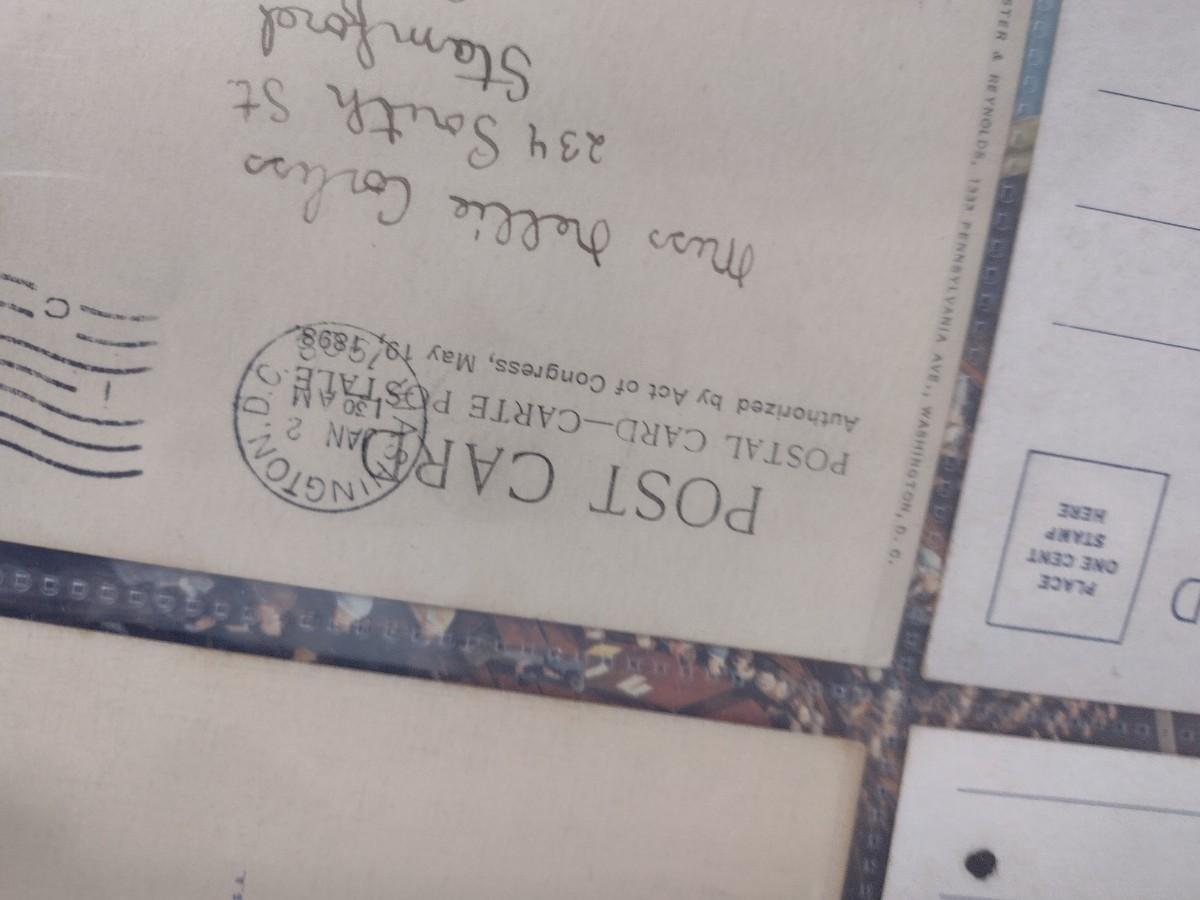 POST CARD
POSTAL CARD—CARTE POSTALE
Authorized by Act of Congress, May 19, 1898
INGTON, D.C.
JAN 2
1 30 AM
Miss Nellie Corliss
234 South St
Stamford
STER & REYNOLDS, PENNSYLVANIA AVE., WASHINGTON, D. C.
PLACE
ONE CENT
STAMP
HERE
D